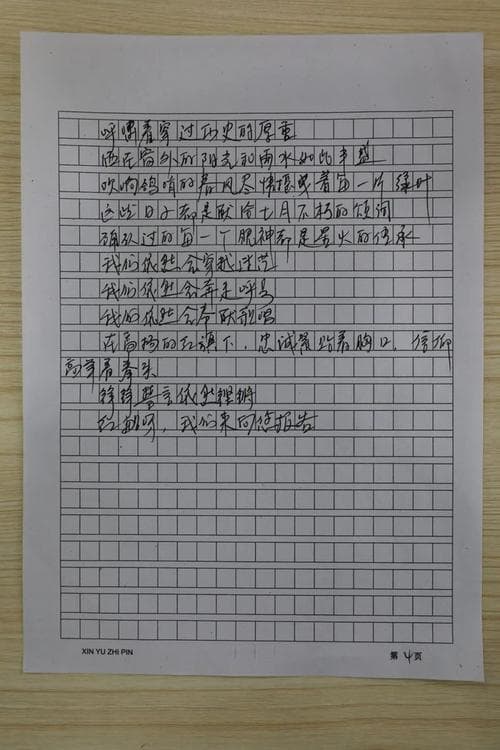 呼啸着穿过历史的厚重
洒在窗外的阳光和雨水如此丰盈
吹响鸽哨的春风尽情摇曳着每一片绿叶
这些日子都是献给七月不朽的颂词
确认过的每一个眼神都是星火的传承
我们依然会穿越迷茫
我们依然会奔走呼号
我们依然会奉献歌唱
在高扬的红旗下，忠诚紧贴着胸口，信仰
高举着拳头
铮铮誓言依然铿锵
红船呵，我们来向您报告
XIN YU ZHI PIN
第 4 页